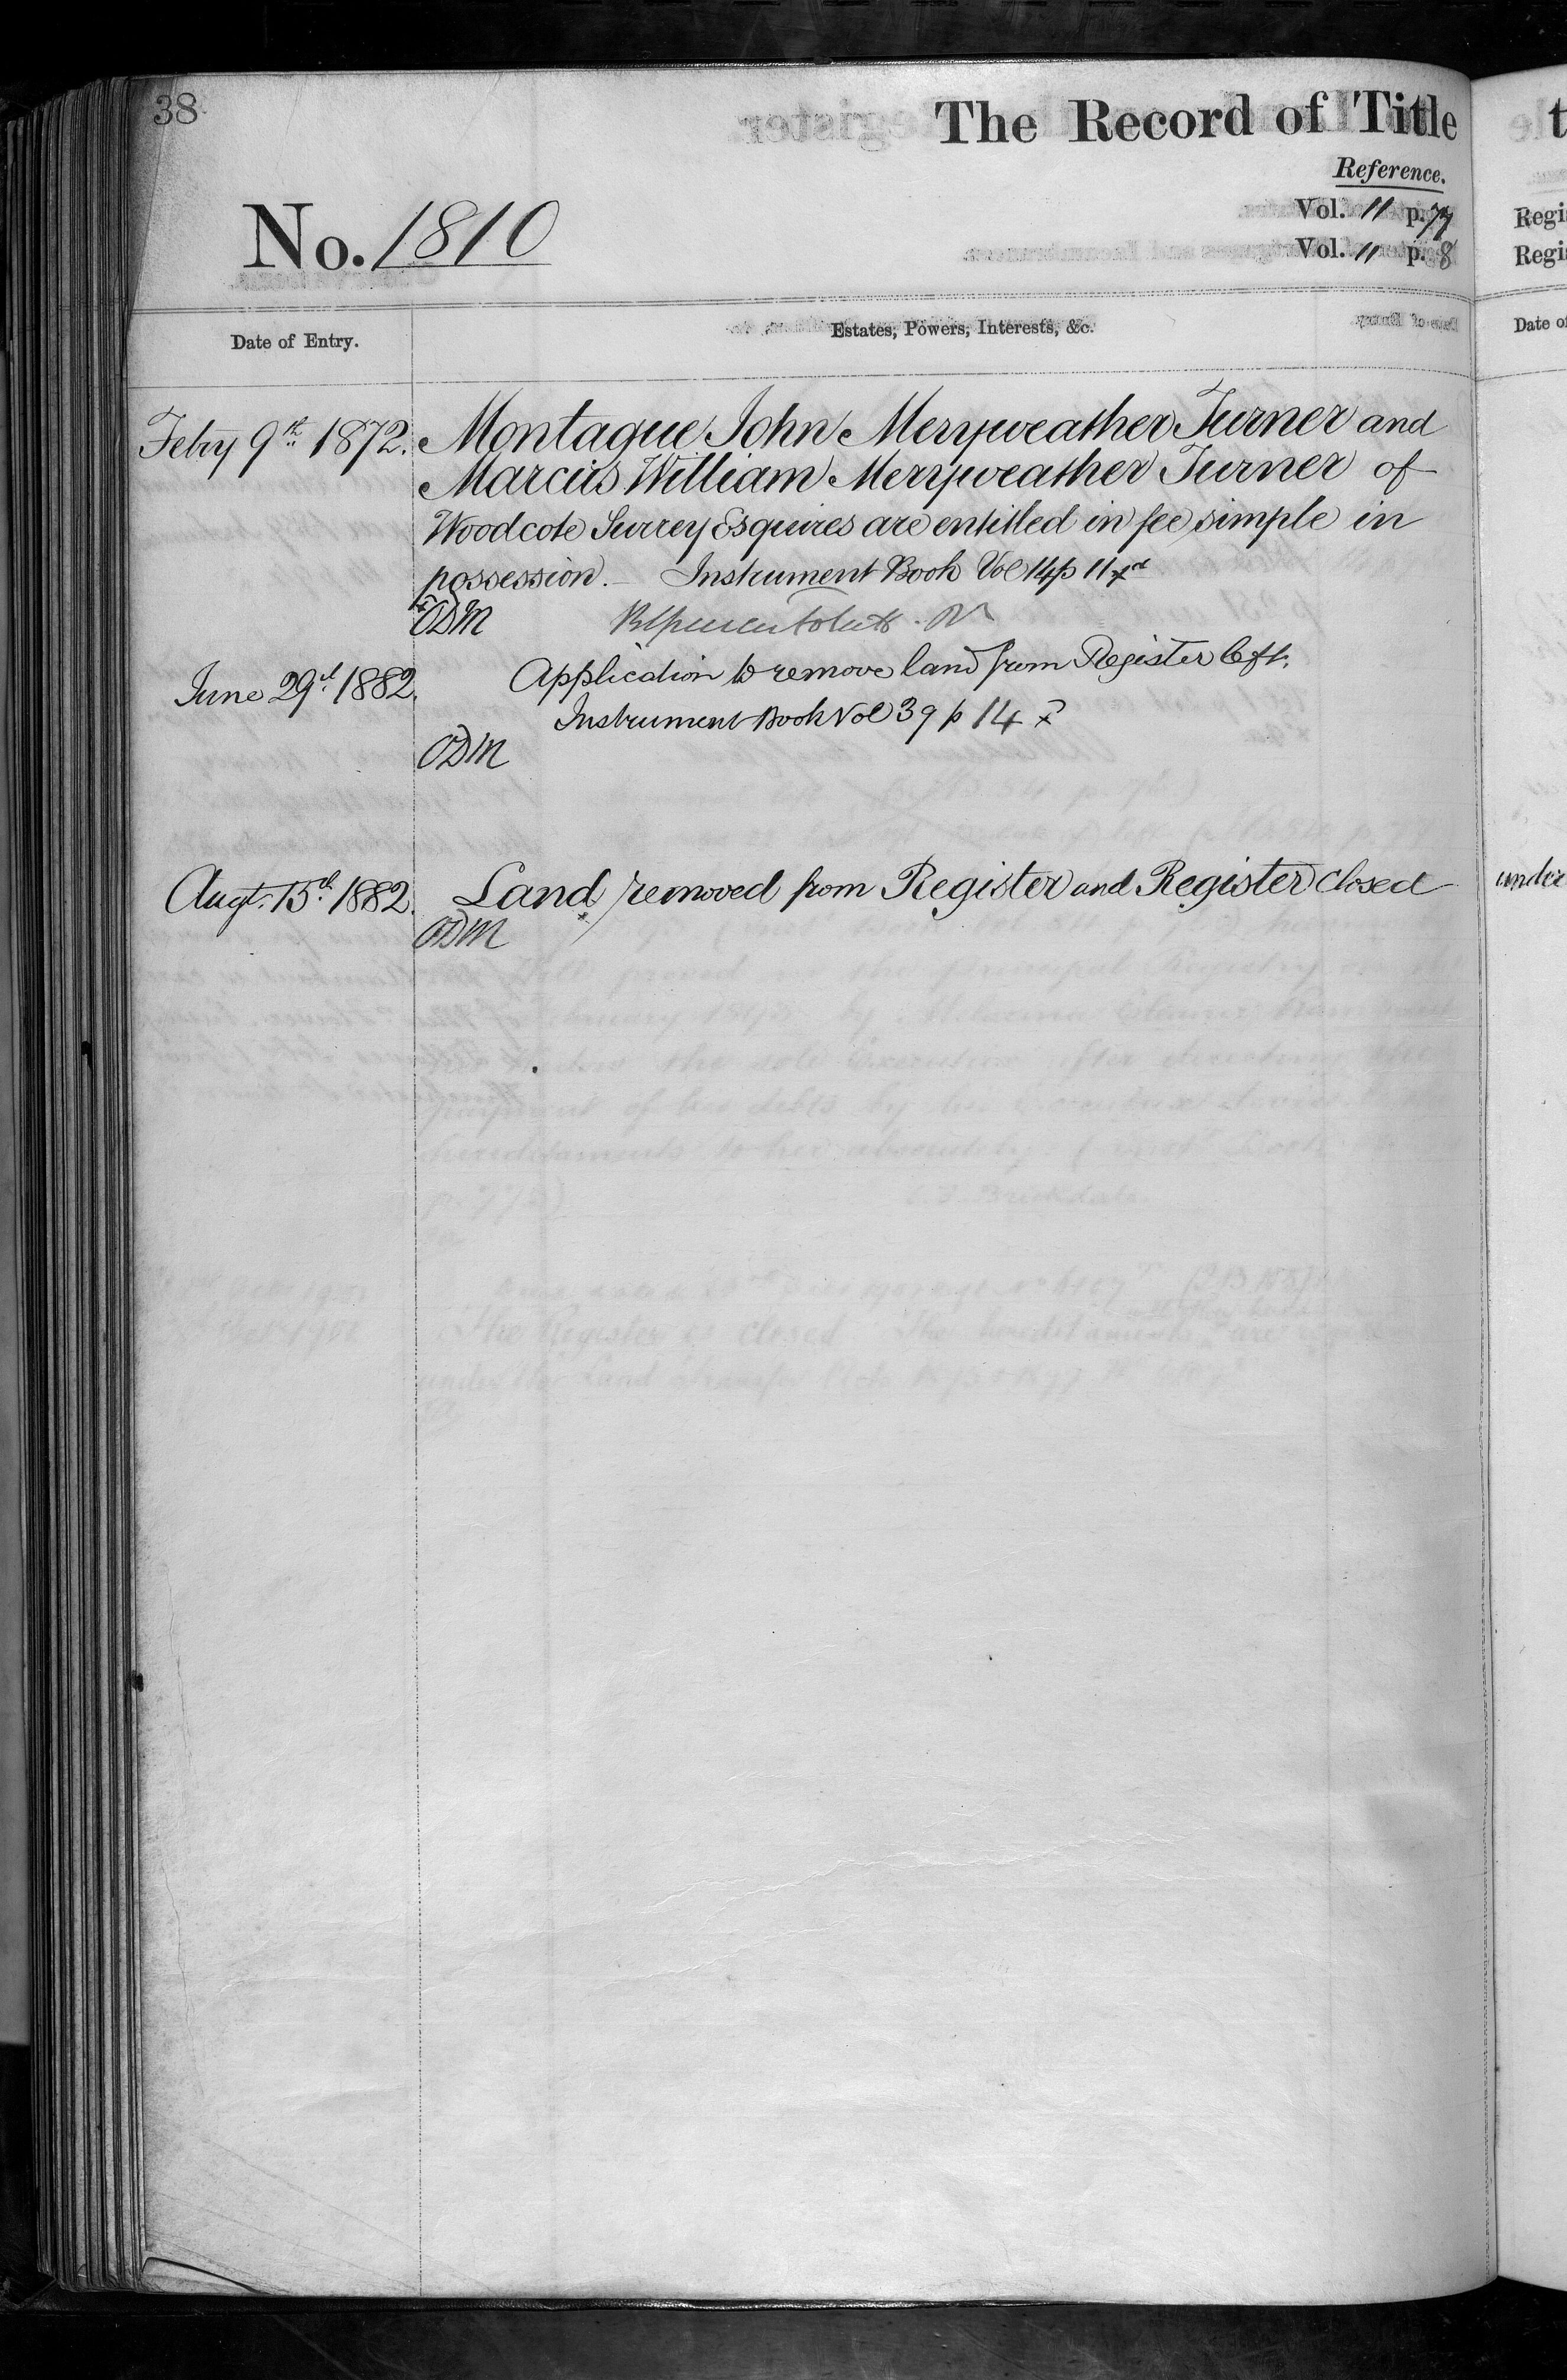 38
The Record of Title
Reference.
No. 1810
Vol. 11 p. 77
Vol. 11 p. 8
Date of Entry.
Estates, Powers, Interests, &c.
Feby 9th 1872. Montague John Meryweather Turner and
Marcus William Meryweather Turner of
Woodcote Surrey Esquires are entitled in fee simple in
possession. — Instrument Book Vol 14 p 11
ODM
June 29th 1882. Application to remove land from Register left.
Instrument Book Vol 39 p 14
ODM
Augt. 15th 1882. Land removed from Register and Register closed
ODM
t
Regi
Regi
Date of
under